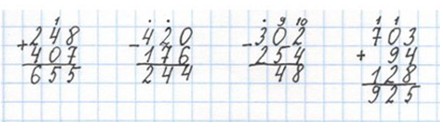 1
+248
407
655
. .
-420
176
244
. 9 10
-302
254
48
1 1
703
+ 94
128
925